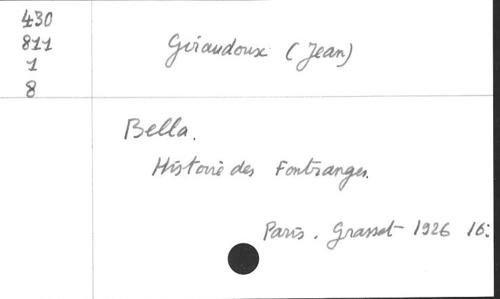 430
811
1
8
Giraudoux (Jean)
Bella.
Histoire des Fontranges.
Paris. Grasset 1926 16: